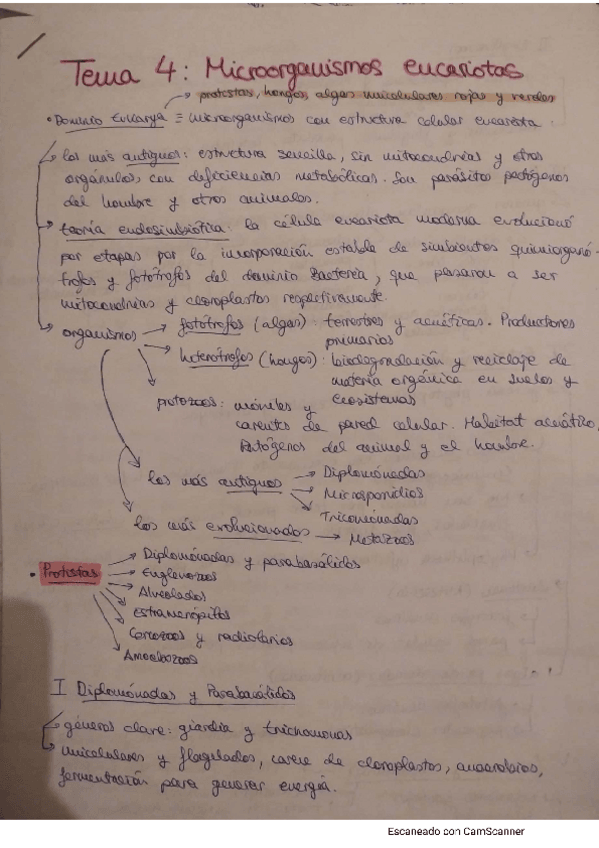 Tema 4: Microorganismos eucariotas
protistas, hongos, algas unicelulares rojas y verdes
• Dominio Eukarya ≡ microorganismos con estructura celular eucariota.
los más antiguos: estructura sencilla, sin mitocondrias y otros
orgánulos, con deficiencias metabólicas. Son parásitos patógenos
del hombre y otros animales.
teoría endosimbiótica: la célula eucariota moderna evolucionó
por etapas por la incorporación estable de simbiontes quimiorganó-
trofos y fotótrofos del dominio Bacteria, que pasaron a ser
mitocondrias y cloroplastos respectivamente.
organismos → fotótrofos (algas): terrestres y acuáticas. Productores
primarios
heterótrofos (hongos): biodegradación y reciclaje de
materia orgánica en suelos y
ecosistemas
protozoos: móviles y
carentes de pared celular. Habitat acuático.
Patógenos del animal y el hombre.
los más antiguos → Diplomónadas
→ Microsporidios
→ Tricomónadas
los más evolucionados → Metazoos
• Protistas → Diplomónadas y parabasálidos
→ Euglenozoos
→ Alveolados
→ Estramenópilos
→ Cercozoos y radiolarios
→ Amoebozoos
I Diplomónadas y Parabasálidos
géneros clave: giardia y trichomonas
unicelulares y flagelados, carece de cloroplastos, anaerobios,
fermentación para generar energía.
Escaneado con CamScanner